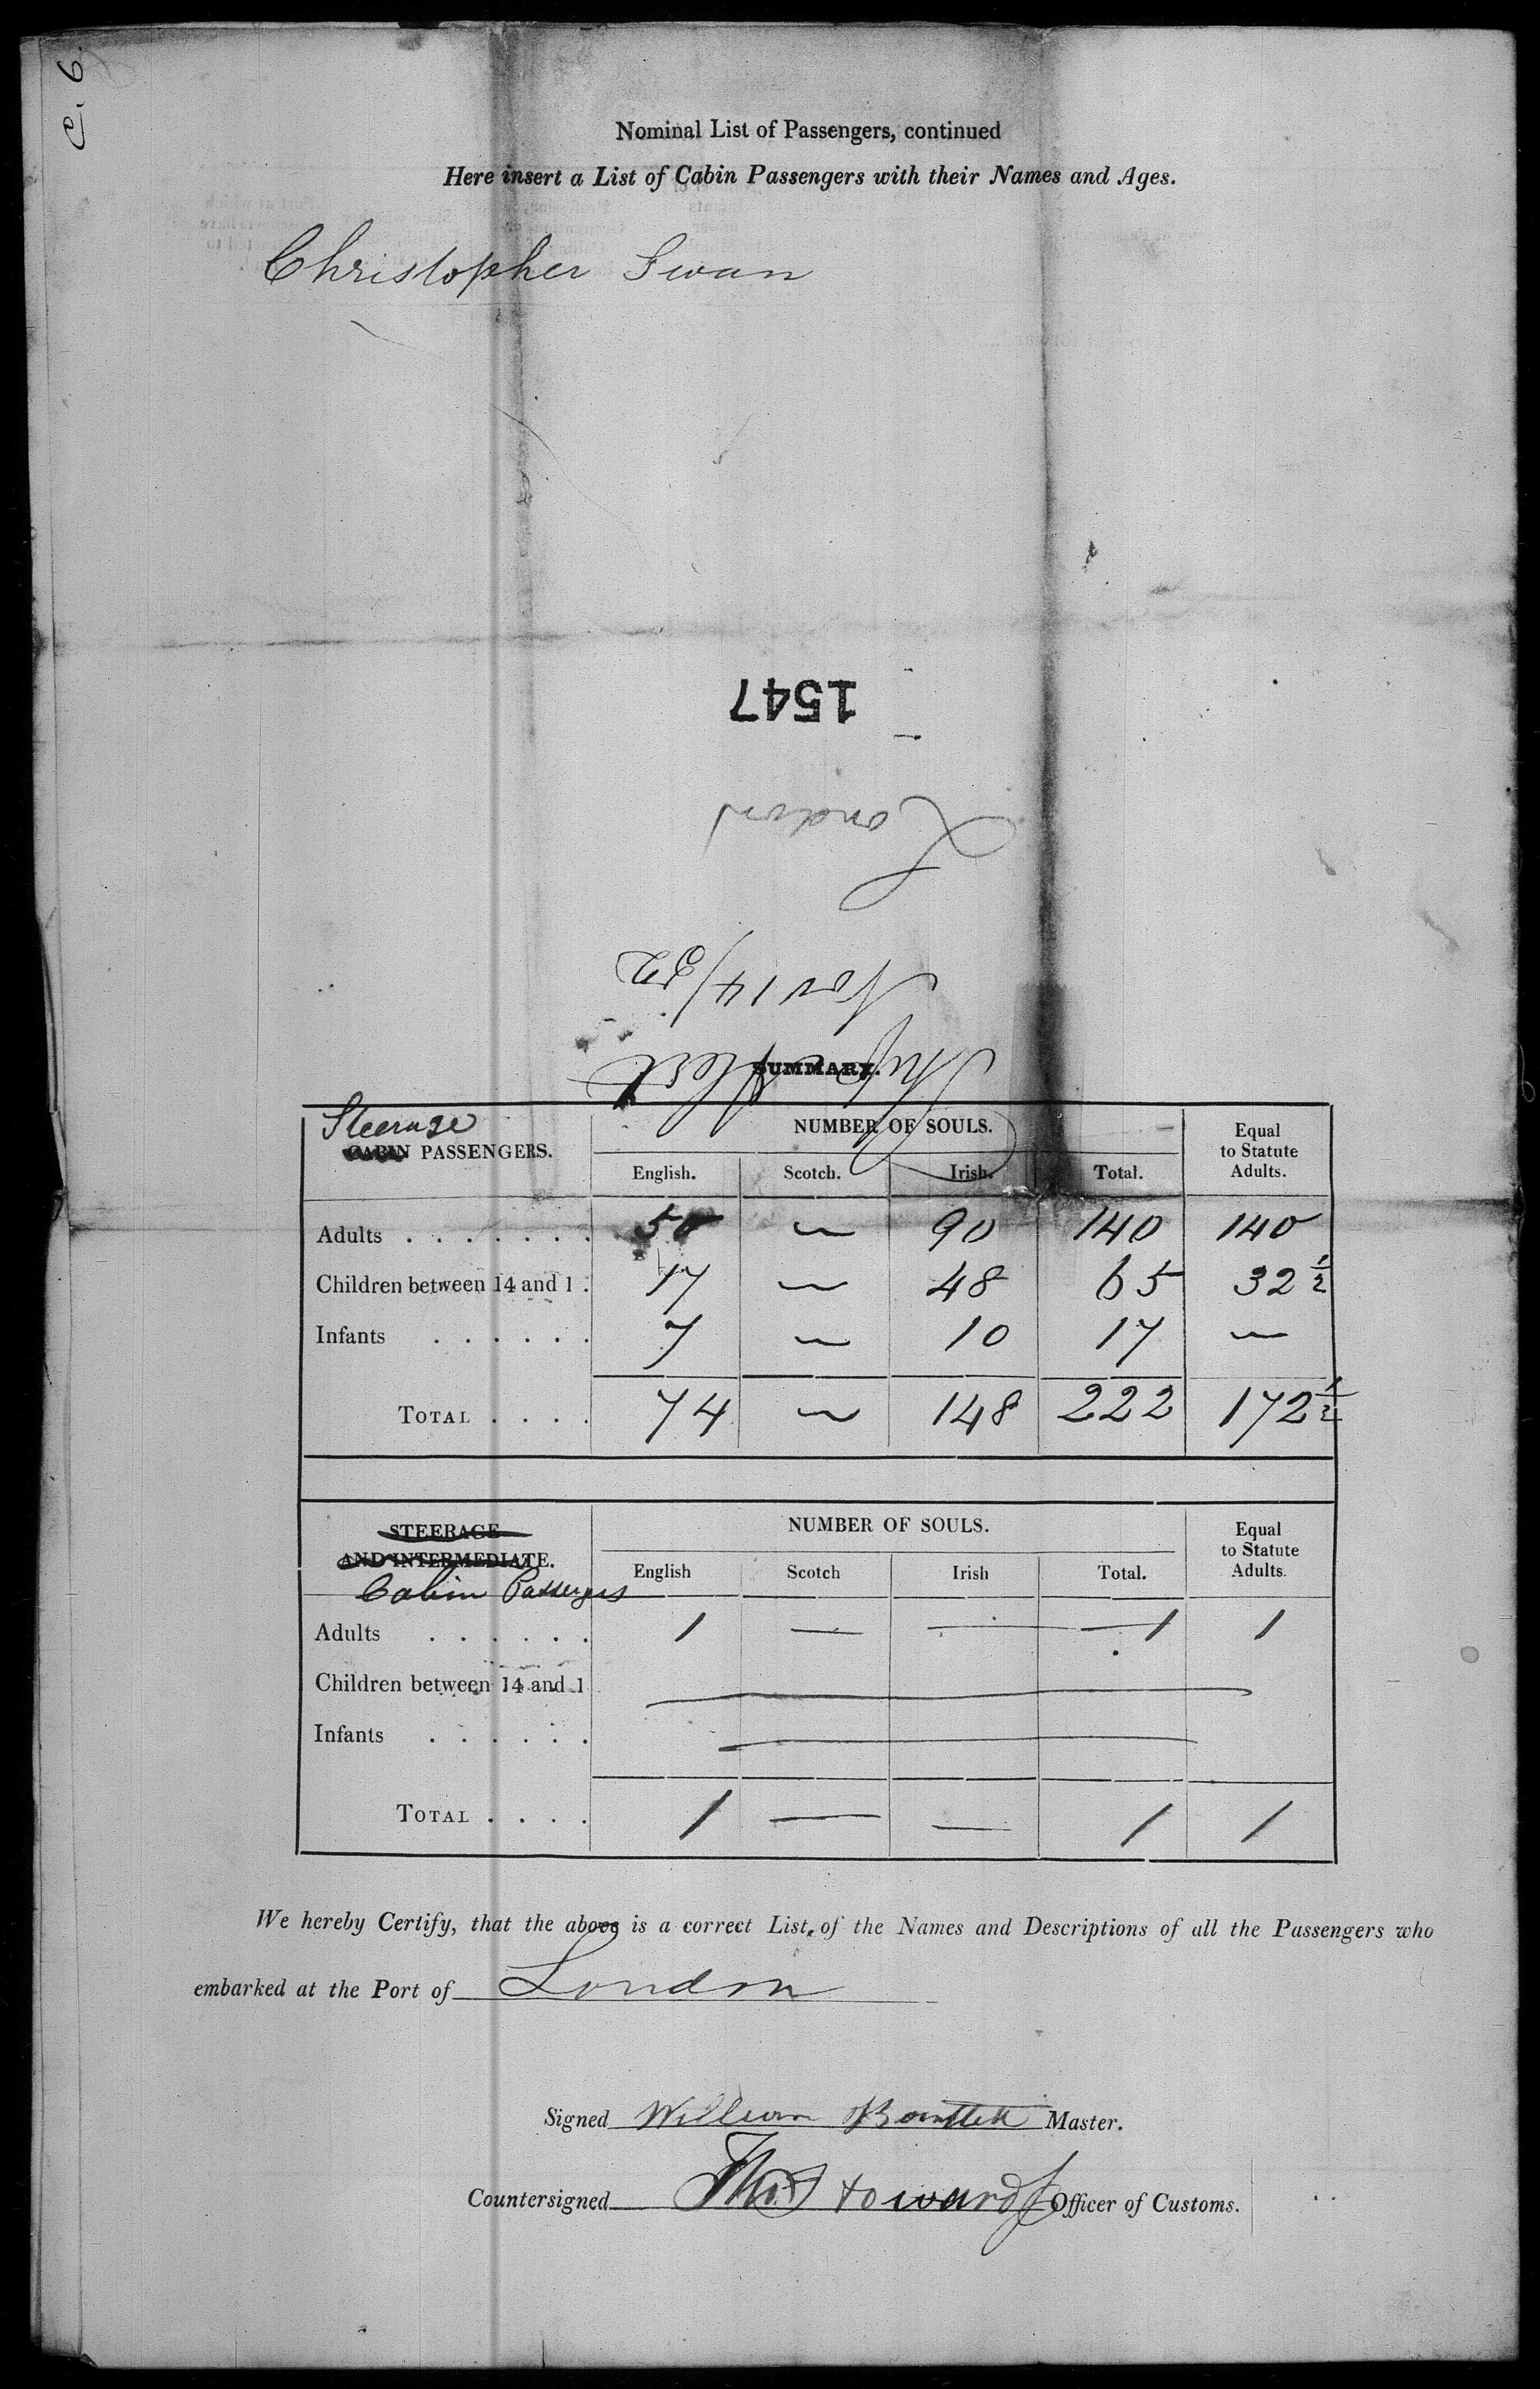 C. 6.
Nominal List of Passengers, continued
Here insert a List of Cabin Passengers with their Names and Ages.
Christopher Swan
1547
London
Nov 14/52
Ship Alert
SUMMARY.
Steerage
CABIN PASSENGERS. NUMBER OF SOULS. Equal to Statute Adults.
English. Scotch. Irish. Total.
Adults . . . . . . . 50 — 90 140 140
Children between 14 and 1 . 17 — 48 65 32 1/2
Infants . . . . . . 7 — 10 17 —
TOTAL . . . . 74 — 148 222 172 1/2
STEERAGE
AND INTERMEDIATE. NUMBER OF SOULS. Equal to Statute Adults.
Cabin Passengers
English Scotch Irish Total.
Adults . . . . . . 1 — — 1 1
Children between 14 and 1 —
Infants . . . . . . —
TOTAL . . . . 1 — — 1 1
We hereby Certify, that the above is a correct List, of the Names and Descriptions of all the Passengers who
embarked at the Port of London
Signed William Master.
Countersigned Thos Officer of Customs.